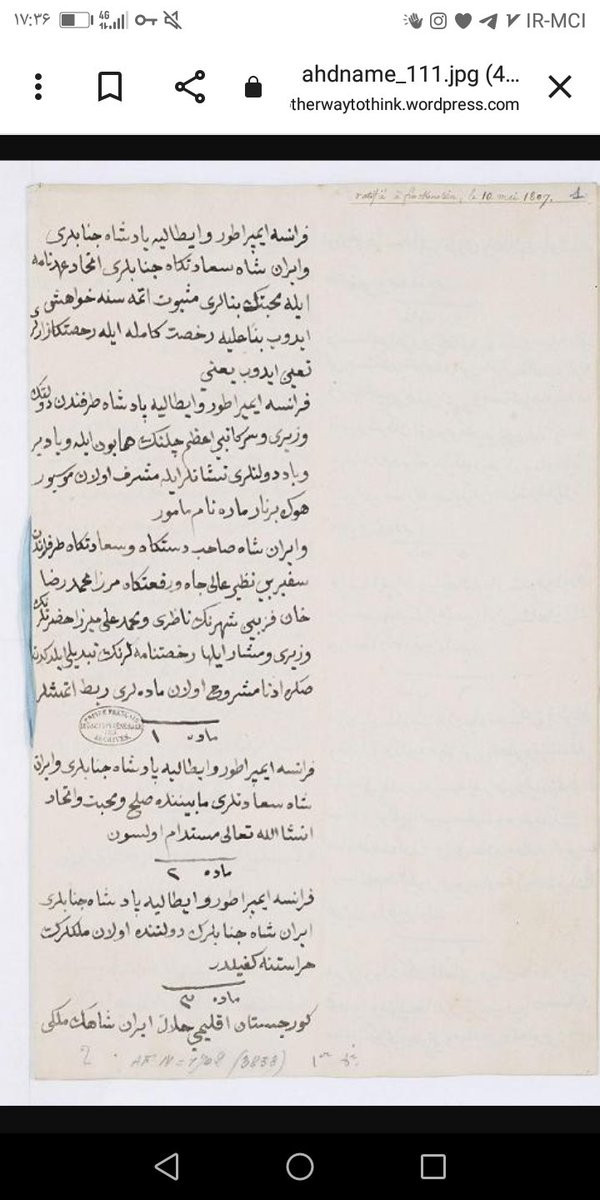 ۱۷:۳۶
4G
IR-MCI
ahdname_111.jpg (4...
:therwaytothink.wordpress.com
ratifié à Finckenstein, le 10 mai 1807.
فرانسه ایمپراطور و ایطالیه پادشاه جنابلری
و ایران شاه سعادتکاه جنابلری اتحاد عهدنامه
ایله محبتک بنالری مثبوت اتمه سنه خواهشی
ایدوب بناءعلیه رخصت کامله ایله رخصتکارلر
تعیی ایدوب یعنی
فرانسه ایمپراطور و ایطالیه پادشاه طرفندن دولتک
وزیری و سرکاتبی اعظم چلنک همایون ایله و بادیر
و باد دولتلری نشانلر ایله مشرف اولان موسیور
هوک برنار ماره نام مامور
و ایران شاه صاحب دستکاه و سعادتکاه طرفلرندن
سفیر بی نظیر عالی جاه و رفعتکاه مرزا محمد رضا
خان قزبینی شهرنک ناظری و محمد علی میرزا حضرتلرنک
وزیری و مشارایلها رخصتنامه لرنک تبدیلی ایلدکدن
صکره ادنا مشروحی اولان ماده لری ربط اتمشلر
ماده ۱
فرانسه ایمپراطور و ایطالیه پادشاه جنابلری و ایران
شاه سعادتلری مابیننده صلح و محبت و اتحاد
انشاالله تعالی مستدام اولسون
ماده ۲
فرانسه ایمپراطور و ایطالیه پادشاه جنابلری
ایران شاه جنابلرک دولتنده اولان ملکلرک
حراستنه کفیلدر
ماده ۳
کورجستان اقلیمی حلال ایران شاهک ملکی
2
AF IV = 1708 (3833)